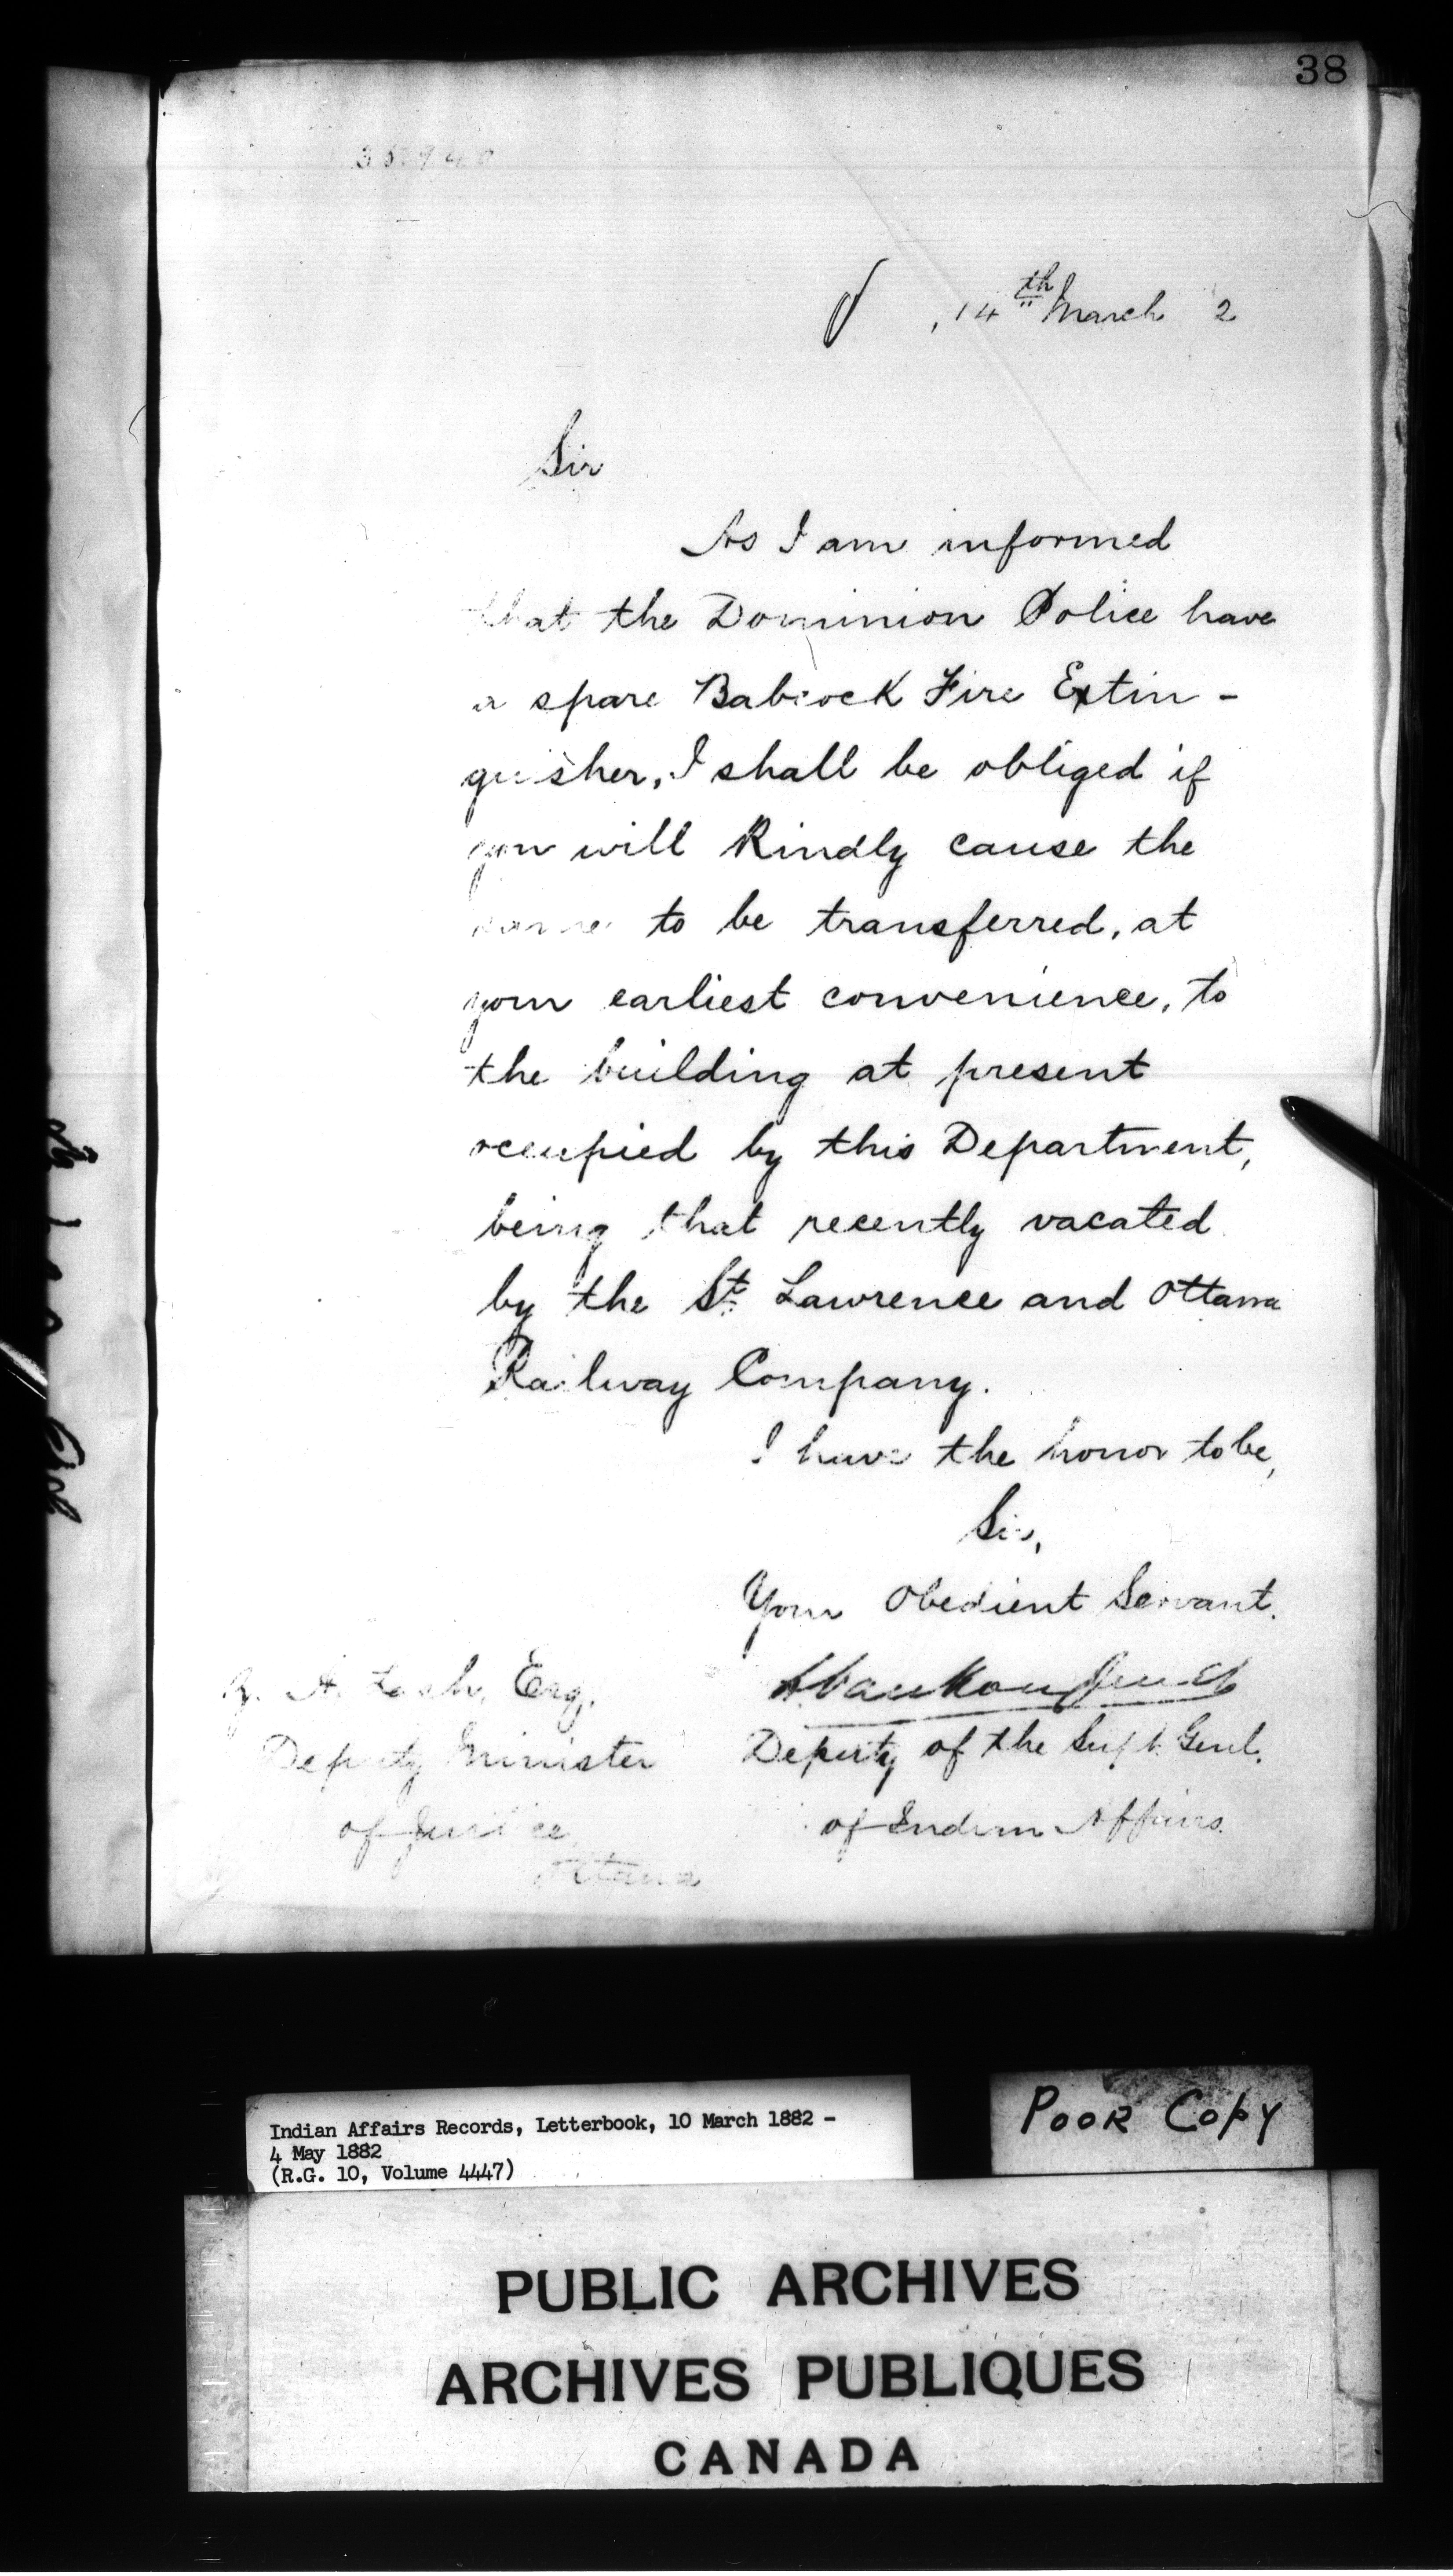 38
14th March 2
Sir
As I am informed
that the Dominion Police have
a spare Babcock Fire Extin -
guisher, I shall be obliged if
you will kindly cause the
same to be transferred, at
your earliest convenience, to
the building at present
occupied by this Department,
being that recently vacated
by the St. Lawrence and Ottawa
Railway Company.
I have the honor to be,
Sir,
Your Obedient Servant.
L Vankoughnet
Deputy of the Supt. Genl.
of Indian Affairs.
Z. A. Lash, Esq,
Deputy Minister
of Justice,
Ottawa
Indian Affairs Records, Letterbook, 10 March 1882 -
4 May 1882
(R.G. 10, Volume 4447)
POOR COPY
PUBLIC ARCHIVES
ARCHIVES PUBLIQUES
CANADA